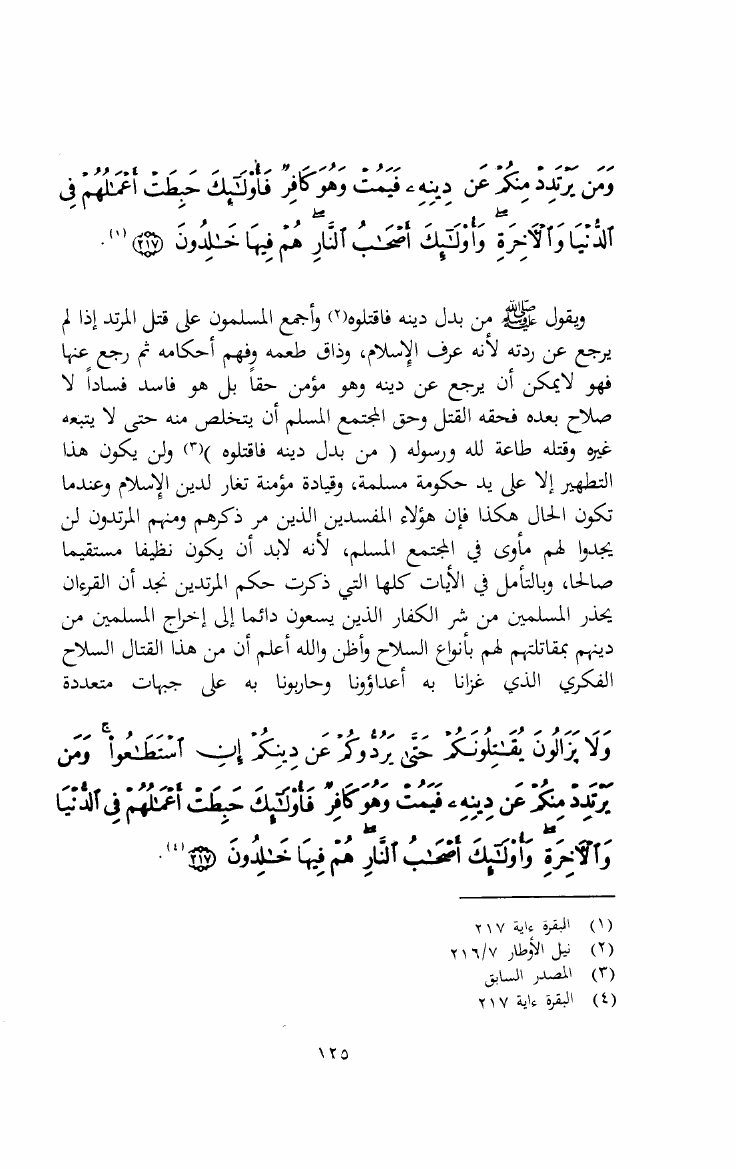 وَمَن يَرْتَدِدْ مِنكُمْ عَن دِينِهِۦ فَيَمُتْ وَهُوَ كَافِرٌ فَأُوْلَٰٓئِكَ حَبِطَتْ أَعْمَٰلُهُمْ فِى
ٱلدُّنْيَا وَٱلْأَخِرَةِۖ وَأُوْلَٰٓئِكَ أَصْحَٰبُ ٱلنَّارِۖ هُمْ فِيهَا خَٰلِدُونَ ﴿٢١٧﴾ (١).
ويقول ﷺ من بدل دينه فاقتلوه(٢) وأجمع المسلمون على قتل المرتد إذا لم
يرجع عن ردته لأنه عرف الإسلام، وذاق طعمه وفهم أحكامه ثم رجع عنها
فهو لايمكن أن يرجع عن دينه وهو مؤمن حقاً بل هو فاسد فساداً لا
صلاح بعده فحقه القتل وحق المجتمع المسلم أن يتخلص منه حتى لا يتبعه
غيره وقتله طاعة لله ورسوله ( من بدل دينه فاقتلوه )(٣) ولن يكون هذا
التطهير إلا على يد حكومة مسلمة، وقيادة مؤمنة تغار لدين الإسلام وعندما
تكون الحال هكذا فإن هؤلاء المفسدين الذين مر ذكرهم ومنهم المرتدون لن
يجدوا لهم مأوى في المجتمع المسلم، لأنه لابد أن يكون نظيفا مستقيما
صالحا، وبالتأمل في الأيات كلها التي ذكرت حكم المرتدين نجد أن القرءان
يحذر المسلمين من شر الكفار الذين يسعون دائما إلى إخراج المسلمين من
دينهم بمقاتلتهم لهم بأنواع السلاح وأظن والله أعلم أن من هذا القتال السلاح
الفكري الذي غزانا به أعداؤونا وحاربونا به على جبهات متعددة
وَلَا يَزَالُونَ يُقَٰتِلُونَكُمْ حَتَّىٰ يَرُدُّوكُمْ عَن دِينِكُمْ إِنِ ٱسْتَطَٰعُواْۚ وَمَن
يَرْتَدِدْ مِنكُمْ عَن دِينِهِۦ فَيَمُتْ وَهُوَ كَافِرٌ فَأُوْلَٰٓئِكَ حَبِطَتْ أَعْمَٰلُهُمْ فِى ٱلدُّنْيَا
وَٱلْأَخِرَةِۖ وَأُوْلَٰٓئِكَ أَصْحَٰبُ ٱلنَّارِۖ هُمْ فِيهَا خَٰلِدُونَ ﴿٢١٧﴾ (٤).
(١) البقرة ءاية ٢١٧
(٢) نيل الأوطار ٢١٦/٧
(٣) المصدر السابق
(٤) البقرة ءاية ٢١٧
١٢٥